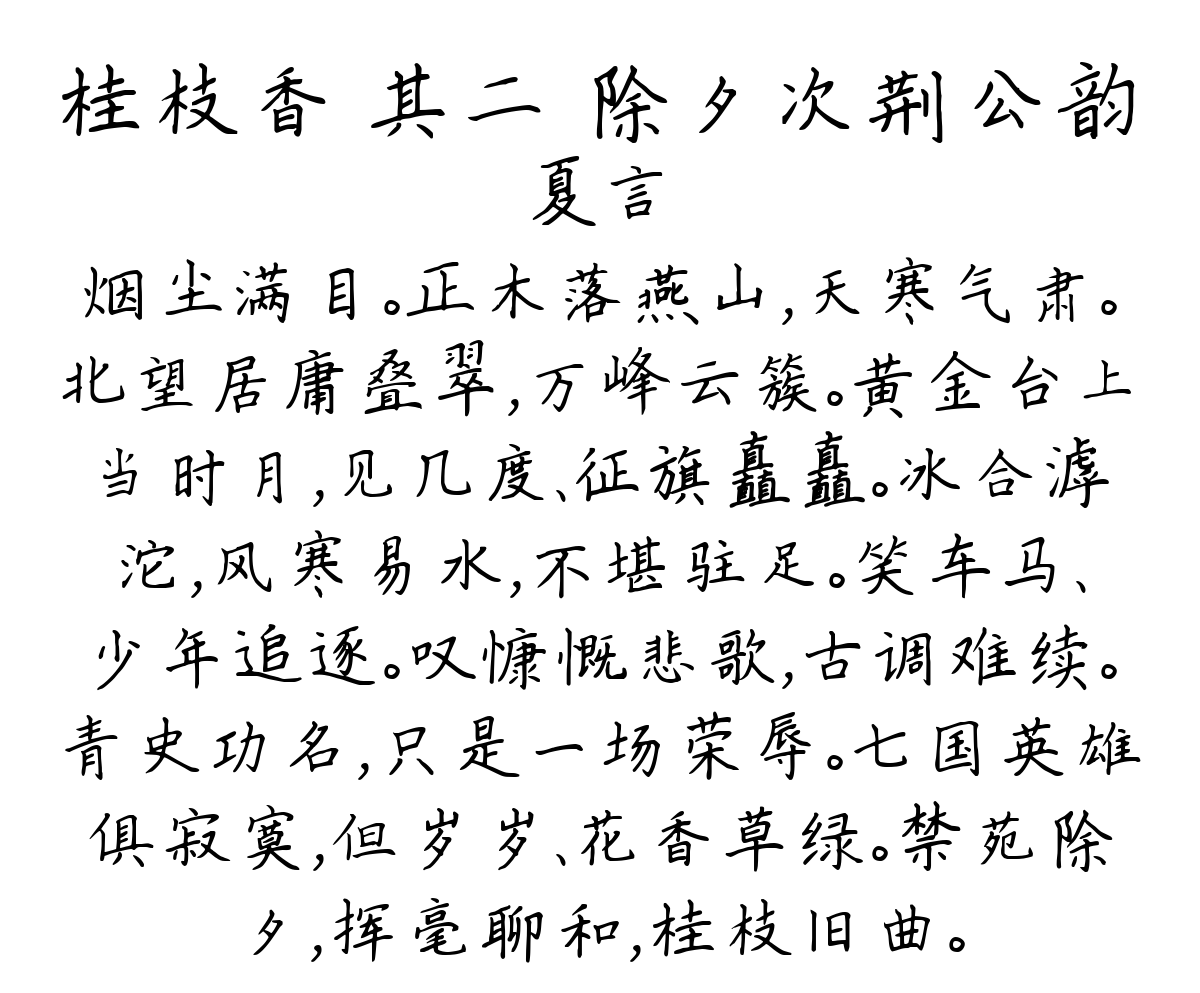 桂枝香 其二 除夕次荆公韵
夏言
烟尘满目。正木落燕山,天寒气肃。
北望居庸叠翠,万峰云簇。黄金台上
当时月,见几度、征旗矗矗。冰合滹
沱,风寒易水,不堪驻足。笑车马、
少年追逐。叹慷慨悲歌,古调难续。
青史功名,只是一场荣辱。七国英雄
俱寂寞,但岁岁、花香草绿。禁苑除
夕,挥毫聊和,桂枝旧曲。